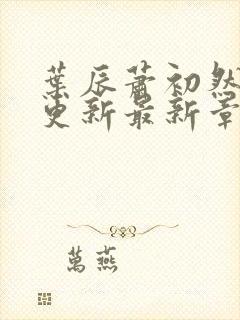 葉辰蕭初然
更新最新章
萬燕